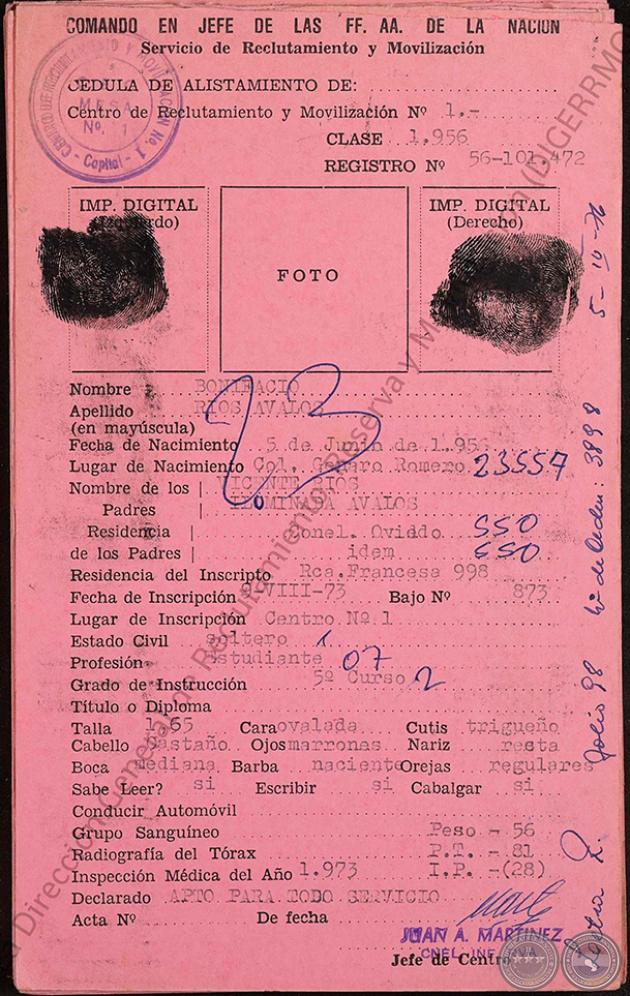 COMANDO EN JEFE DE LAS FF. AA. DE LA NACION
Servicio de Reclutamiento y Movilización
CEDULA DE ALISTAMIENTO DE:
Centro de Reclutamiento y Movilización Nº 1.-
CLASE 1.956
REGISTRO Nº 56-101.472
CENTRO DE RECLUTAMIENTO Y MOVILIZACION No. 1
MESA
No. 1
- Capital -
IMP. DIGITAL
(Izquierdo)
FOTO
IMP. DIGITAL
(Derecho)
5-IV-76
Nombre BONIFACIO
Apellido RIOS AVALOS
(en mayúscula)
23
Fecha de Nacimiento 5 de Junio de 1.956
Lugar de Nacimiento Col. Genaro Romero 23557
Nombre de los VICENTE RIOS
Padres AVALOS
Residencia Conel. Oviddo 550
de los Padres idem 550
Residencia del Inscripto Rca.Francesa 998
Fecha de Inscripción VIII-73 Bajo Nº 873
Lugar de Inscripción Centro Nº 1
Estado Civil soltero 1
Profesión estudiante 07
Grado de Instrucción 5º Curso 2
Título o Diploma
Talla 1.65 Cara ovalada Cutis trigueño
Cabello castaño Ojos marronas Nariz recta
Boca mediana Barba naciente Orejas regulares
Sabe Leer? si Escribir si Cabalgar si
Conducir Automóvil
Grupo Sanguíneo Peso - 56
Radiografía del Tórax P.T. - 81
Inspección Médica del Año 1.973 I.P. -(28)
Declarado APTO PARA TODO SERVICIO
Acta Nº De fecha
JUAN A. MARTINEZ
CNEL. INF.
Jefe de Centro
Nº de Orden: 3898
Folio 98
Letra R.
Dirección General de Reclutamiento, Reserva y Movilización (DIGERRMOV)